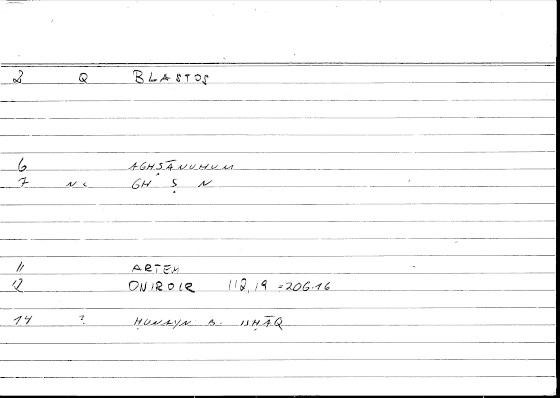 2 Q BLASTOS
6 AGHṢĀNUHUM
7 NC GH Ṣ N
11 ARTEM
12 ONIROCR 112,19 =206.16
14 ? ḤUNAYN B. ISḤĀQ